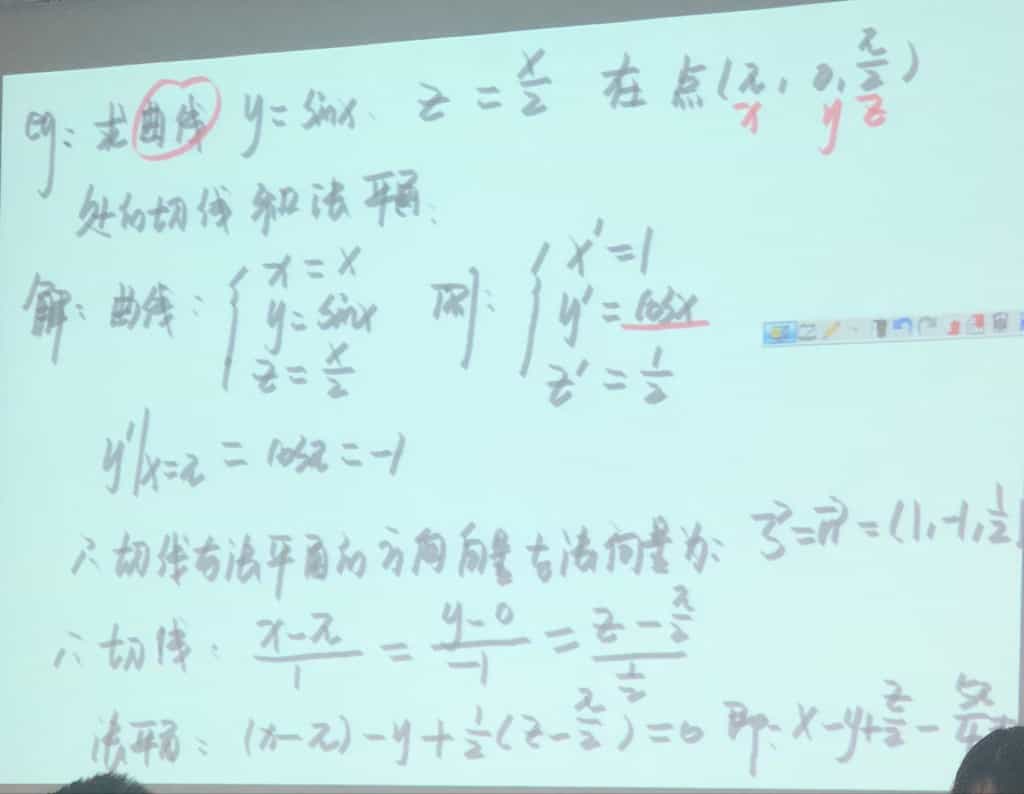 eg: 求曲线 y=sinx、 z=x/2 在点(π, 0, π/2)
x y z
处的切线和法平面.
解: 曲线: { x=x 则: { x'=1
y=sinx y'=cosx
z=x/2 z'=1/2
y'|x=π = cosπ = -1
∴切线与法平面的方向向量与法向量为: = n⃗ = (1,-1,1/2
∴切线: (x-π)/1 = (y-0)/-1 = (z-π/2)/(1/2)
法平面: (x-π)-y+1/2(z-π/2)=0 即: x-y+z/2-5π/4